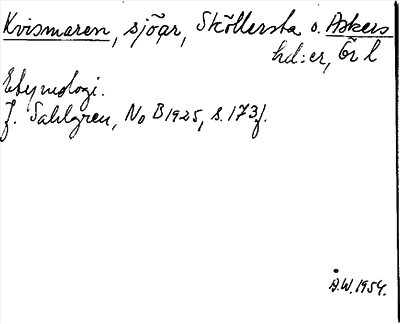 Kvismaren, sjöar, Sköllersta o. Askers
hd:er, Ör l
Etymologi.
J. Sahlgren, No B 1925, s. 173f.
Å.W. 1954.